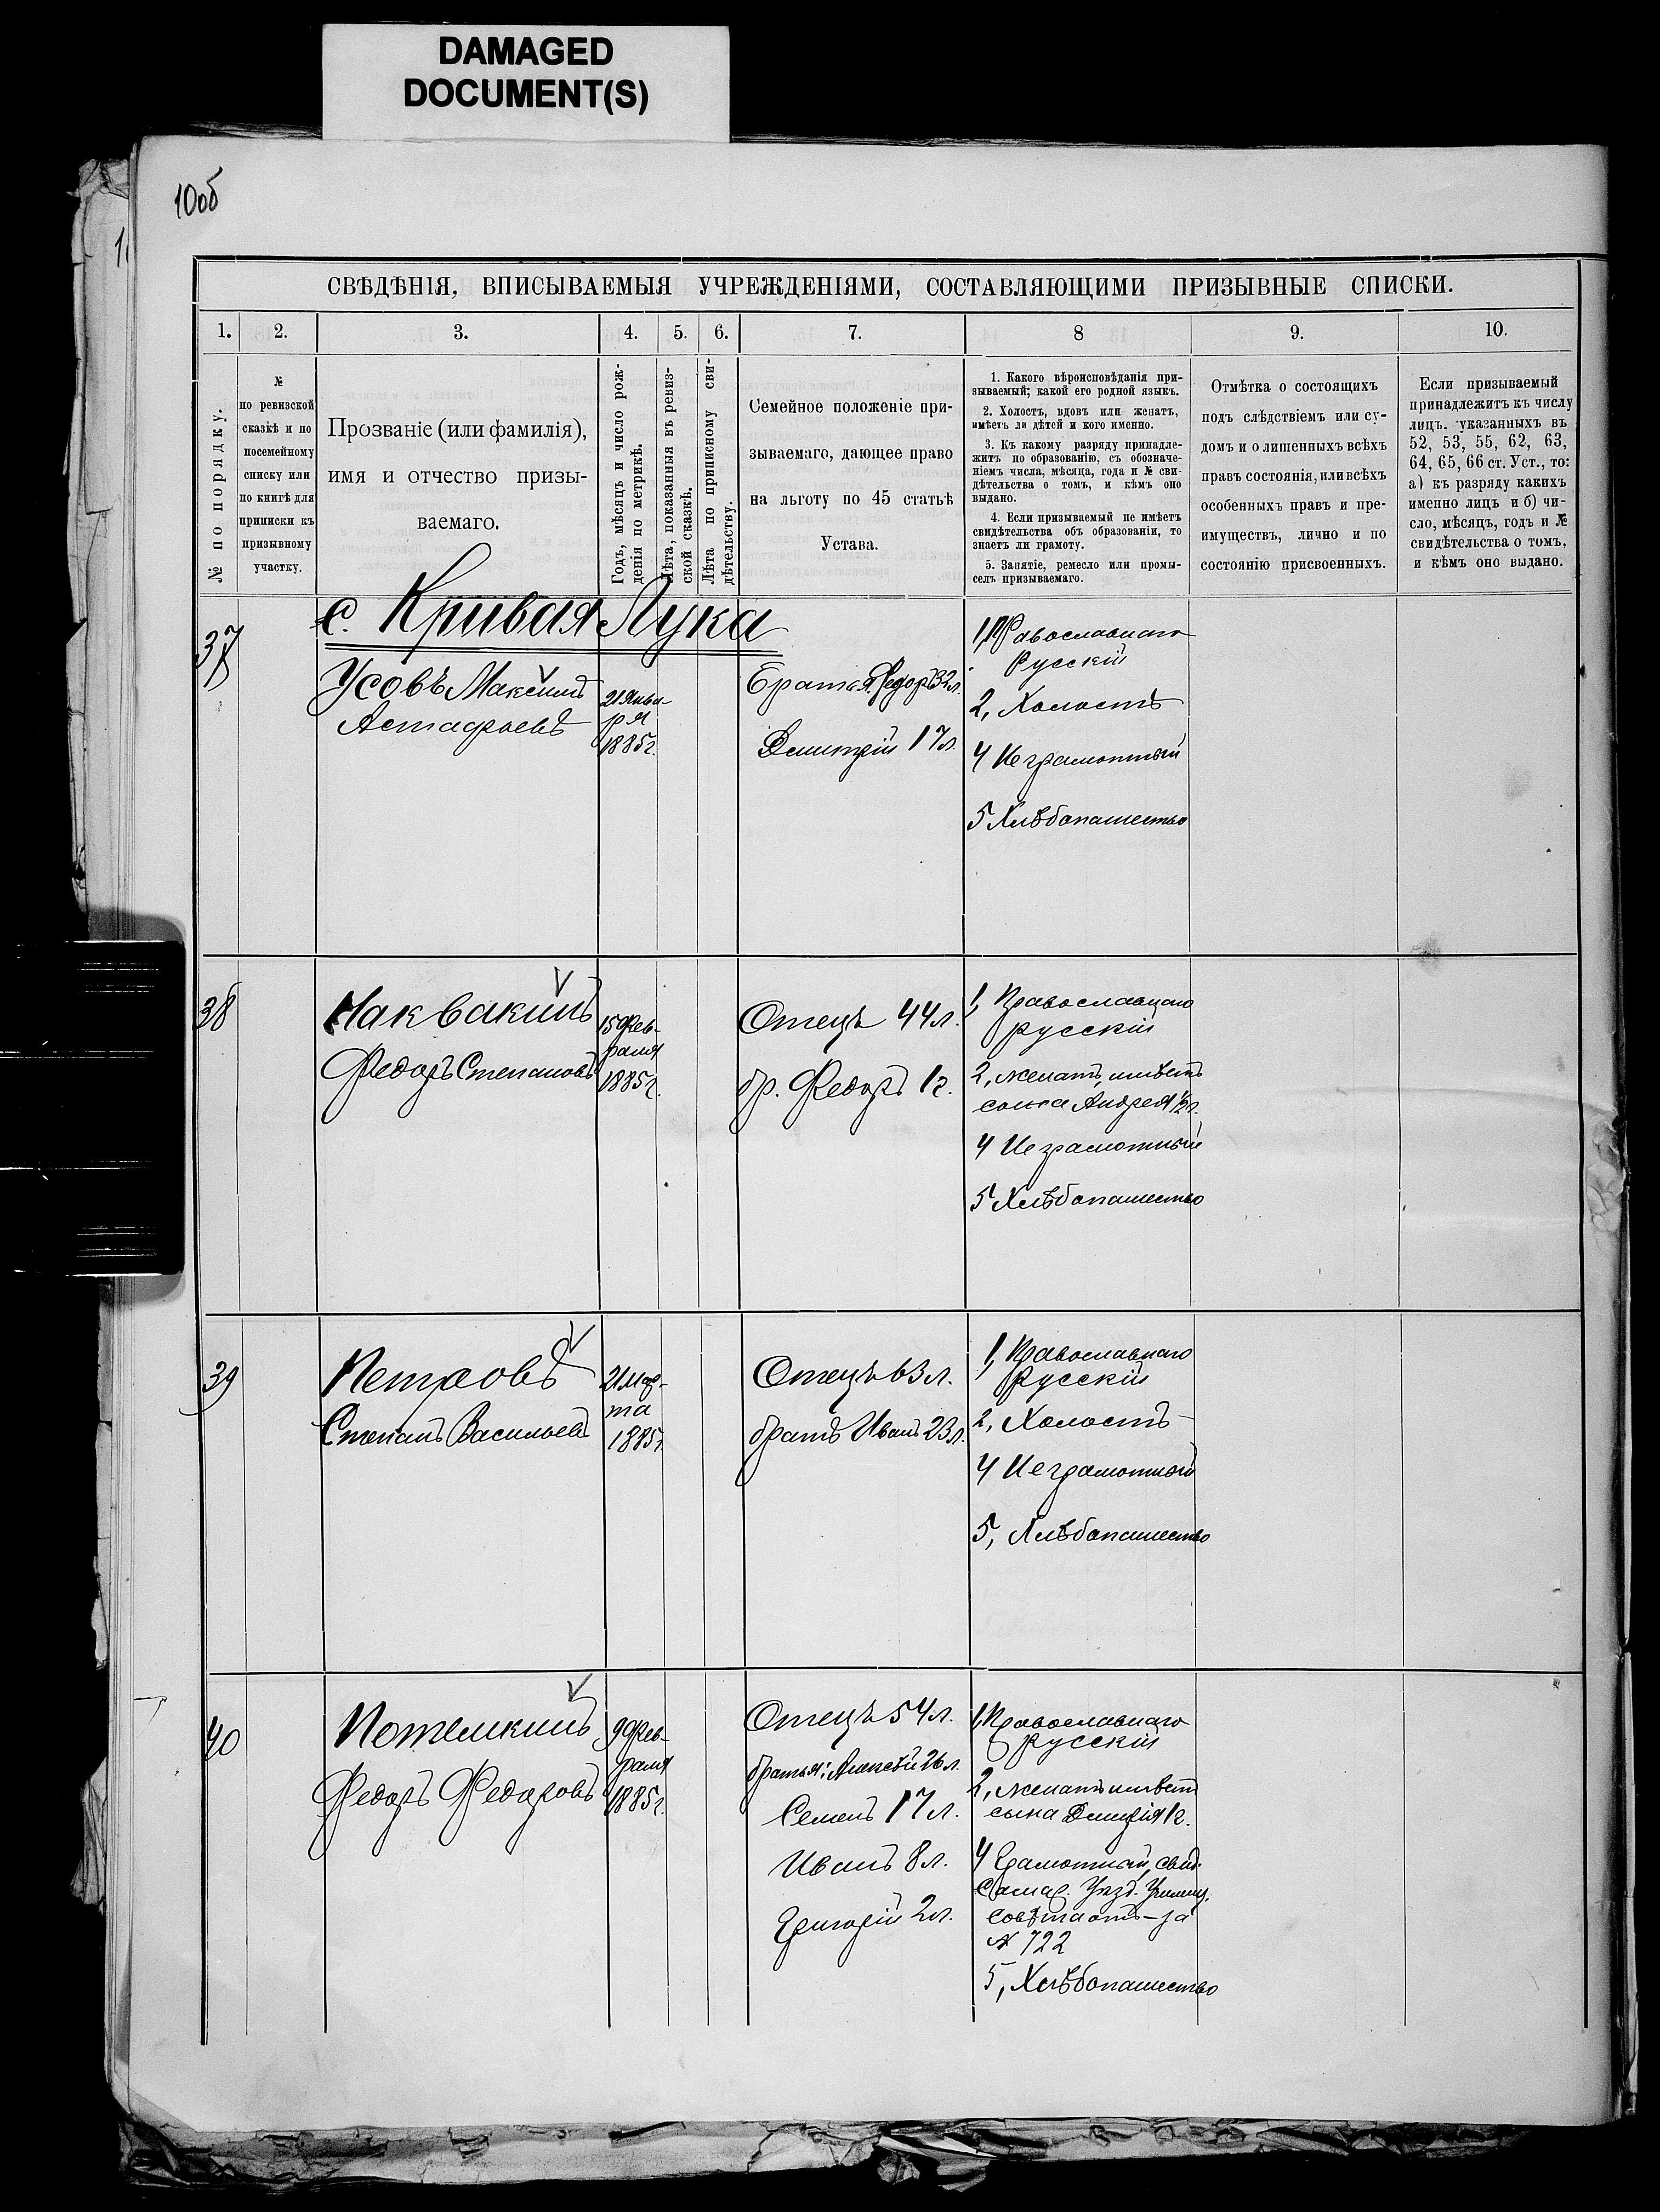 DAMAGED
DOCUMENT(S)
10об
СВѢДѢНІЯ, ВПИСЫВАЕМЫЯ УЧРЕЖДЕНІЯМИ, СОСТАВЛЯЮЩИМИ ПРИЗЫВНЫЕ СПИСКИ.
1. 2. 3. 4. 5. 6. 7. 8 9. 10.
№ по порядку.
№
по ревизской
сказкѣ и по
посемейному
списку или
по книгѣ для
приписки къ
призывному
участку.
Прозваніе (или фамилія),
имя и отчество призы-
ваемаго.
Годъ, мѣсяцъ и число рож-
денія по метрикѣ.
Лѣта, показанныя въ ревиз-
ской сказкѣ.
Лѣта по приписному сви-
дѣтельству.
Семейное положеніе при-
зываемаго, дающее право
на льготу по 45 статьѣ
Устава.
1. Какого вѣроисповѣданія при-
зываемый; какой его родной языкъ.
2. Холостъ, вдовъ или женатъ,
имѣетъ ли дѣтей и кого именно.
3. Къ какому разряду принадле-
житъ по образованію, съ обозначе-
ніемъ числа, мѣсяца, года и № сви-
дѣтельства о томъ, и кѣмъ оно
выдано.
4. Если призываемый не имѣетъ
свидѣтельства объ образованіи, то
знаетъ ли грамоту.
5. Занятіе, ремесло или промы-
селъ призываемаго.
Отмѣтка о состоящихъ
подъ слѣдствіемъ или су-
домъ и о лишенныхъ всѣхъ
правъ состоянія, или всѣхъ
особенныхъ правъ и пре-
имуществъ, лично и по
состоянію присвоенныхъ.
Если призываемый
принадлежитъ къ числу
лицъ, указанныхъ въ
52, 53, 55, 62, 63,
64, 65, 66 ст. Уст., то:
а) къ разряду какихъ
именно лицъ и б) чи-
сло, мѣсяцъ, годъ и №
свидѣтельства о томъ,
и кѣмъ оно выдано.
с. Кривая Лука
37
Усовъ Максимъ
Астафьевъ
21 Янва-
ря
1885г.
Братья: Федоръ 32л.
Дмитрій 17л.
1, Православнаго
Русскій
2, Холостъ
4 Неграмотный
5 Хлѣбопашество
38
Маквакинъ
Федоръ Степановъ
15 Фев-
раля
1885г.
Отецъ 44л.
бр. Федоръ 1г.
1, Православнаго
русскій
2, женатъ, имѣетъ
сына Андрея ½г.
4 Неграмотный
5 Хлѣбопашество
39
Петровъ
Степанъ Васильевъ
21 Мар-
та
1885г.
Отецъ 63л.
братъ Иванъ 23л.
1, Православнаго
Русскій
2, Холостъ
4 Неграмотный
5, Хлѣбопашество
40
Потемкинъ
Федоръ Федоровъ
9 Фев-
раля
1885г.
Отецъ 54л.
братья: Алексѣй 26л.
Семенъ 17л.
Иванъ 8л.
Григорій 2л.
1, Православнаго
русскій
2, женатъ имѣетъ
сына Дмитрія 1г.
4 Грамотный, свид.
Самар. Уѣзд. Училищ.
Совѣта отъ — за
№ 722
5, Хлѣбопашество